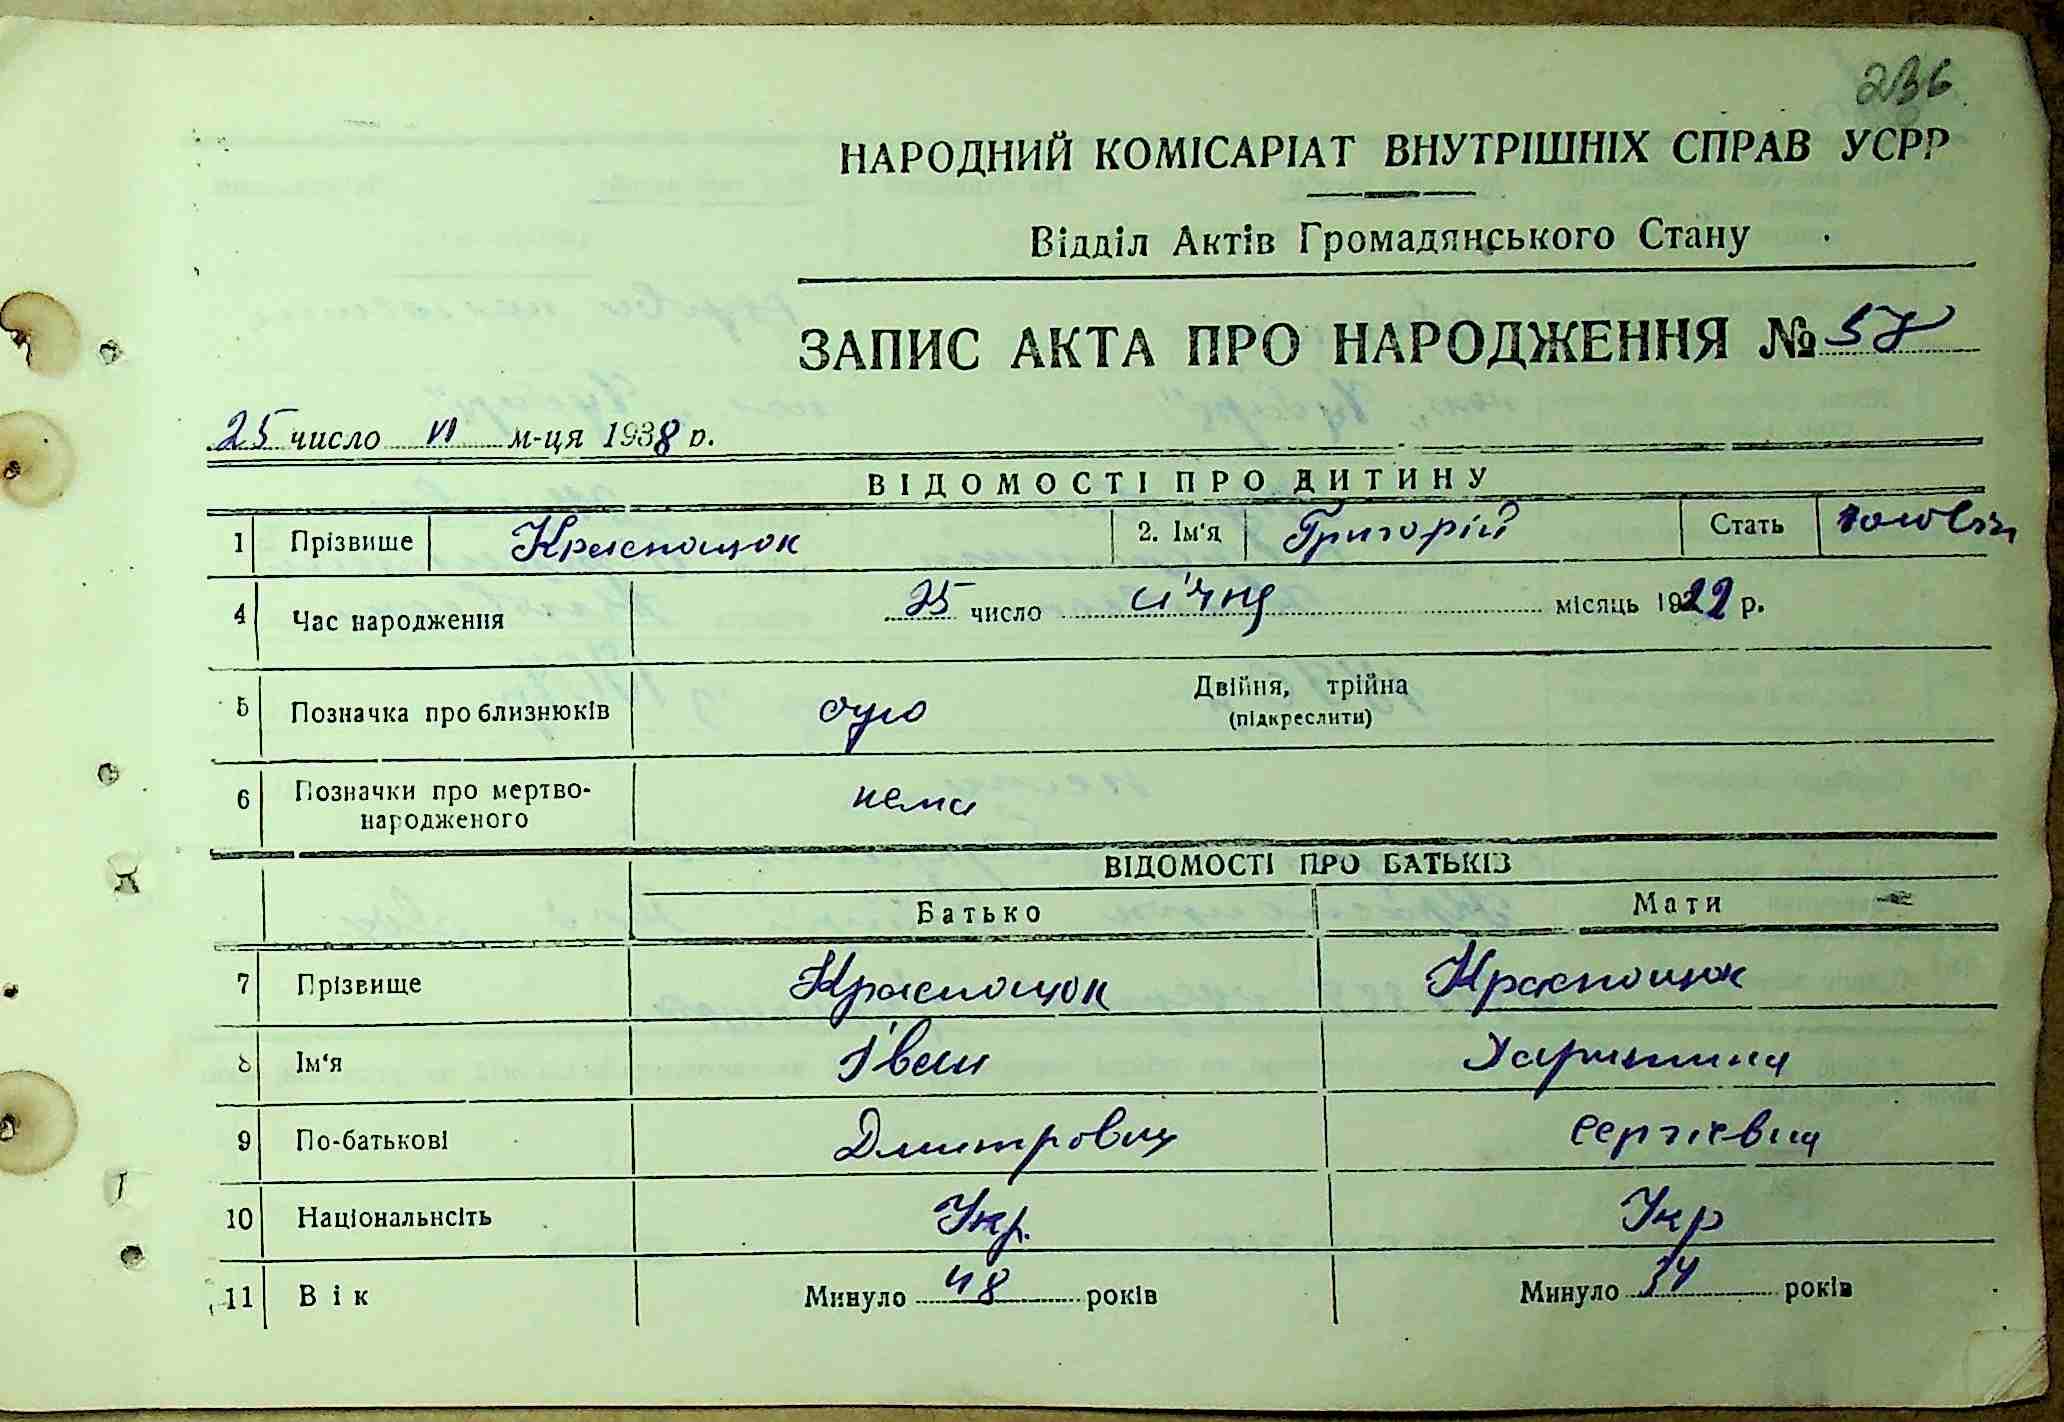 236
НАРОДНИЙ КОМІСАРІАТ ВНУТРІШНІХ СПРАВ УСРР
Відділ Актів Громадянського Стану
ЗАПИС АКТА ПРО НАРОДЖЕННЯ № 58
25 число VI м-ця 1938 р.
ВІДОМОСТІ ПРО ДИТИНУ
1 Прізвище Краснощок 2. Ім'я Григорій Стать
4 Час народження 25 число січня місяць 1922 р.
5 Позначка про близнюків одно Двійня, трійна
(підкреслити)
6 Позначки про мертво-
народженого нема
ВІДОМОСТІ ПРО БАТЬКІВ
Батько Мати
7 Прізвище Краснощок Краснощок
8 Ім'я Іван Харитина
9 По-батькові Дмитрович Сергієвна
10 Національнсіть Укр. Укр
11 Вік Минуло 48 років Минуло 34 років